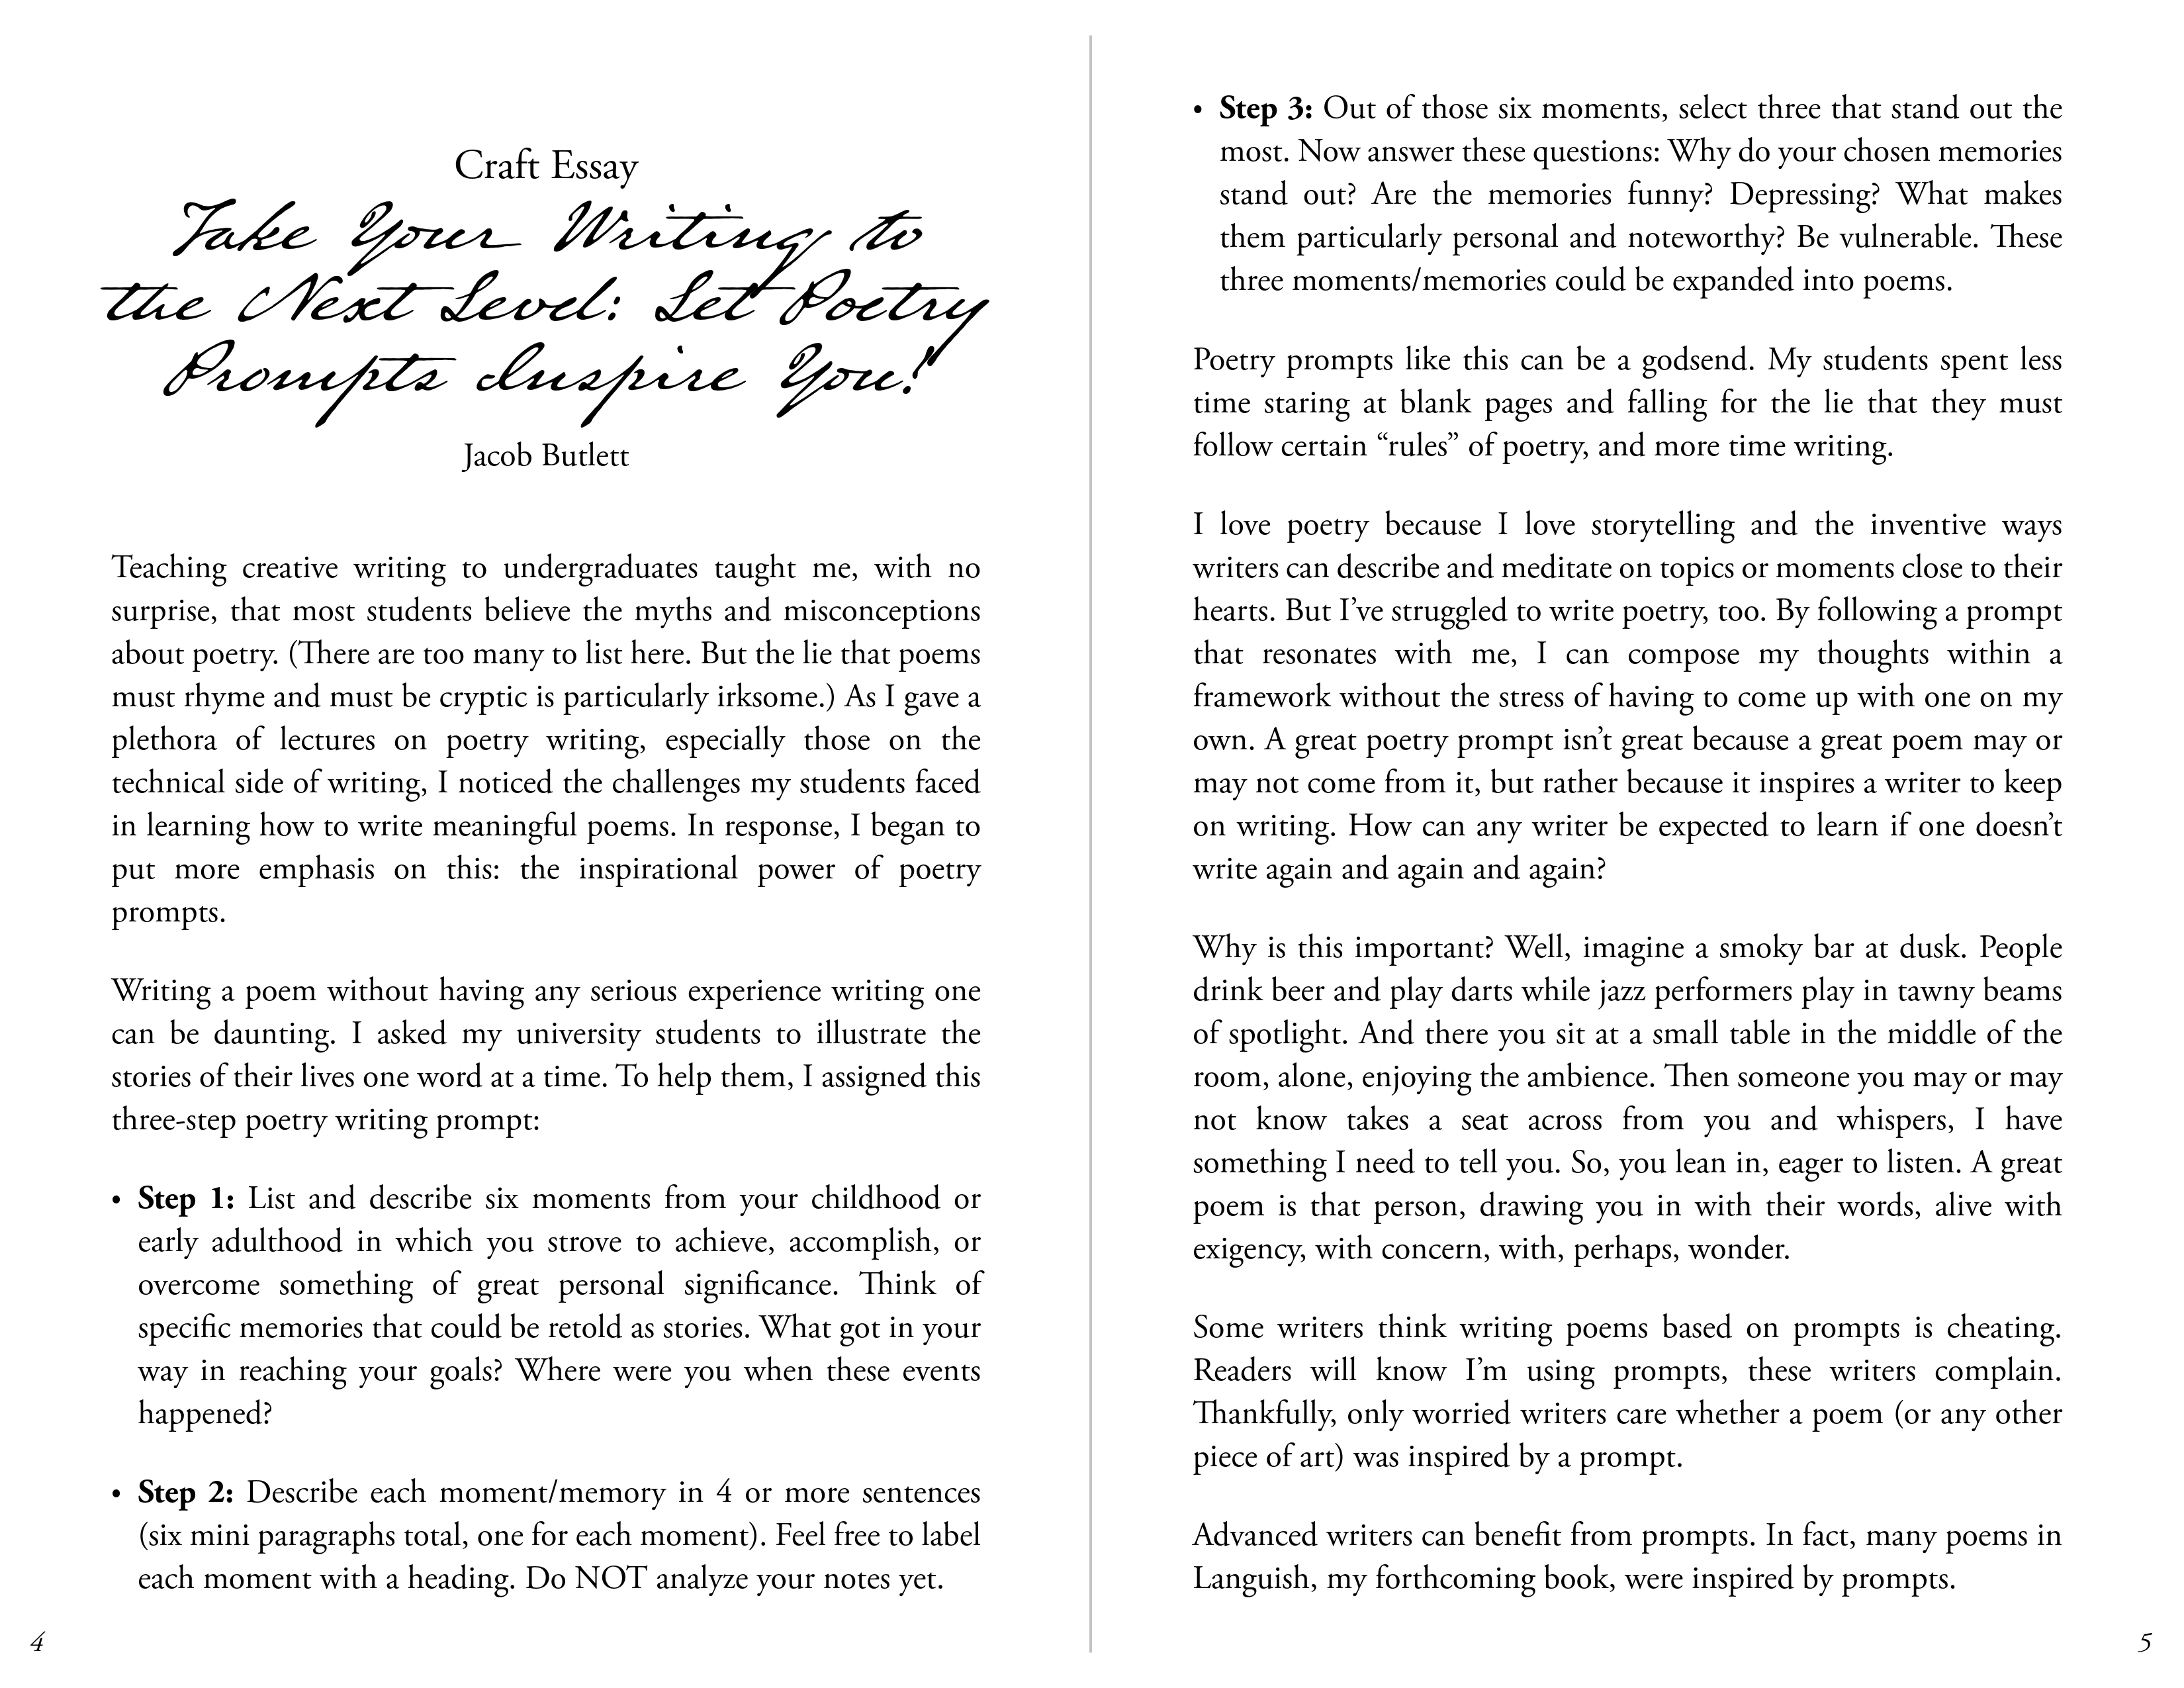 Craft Essay
Take Your Writing to
the Next Level: Let Poetry
Prompts Inspire You!
Jacob Butlett
Teaching creative writing to undergraduates taught me, with no
surprise, that most students believe the myths and misconceptions
about poetry. (There are too many to list here. But the lie that poems
must rhyme and must be cryptic is particularly irksome.) As I gave a
plethora of lectures on poetry writing, especially those on the
technical side of writing, I noticed the challenges my students faced
in learning how to write meaningful poems. In response, I began to
put more emphasis on this: the inspirational power of poetry
prompts.
Writing a poem without having any serious experience writing one
can be daunting. I asked my university students to illustrate the
stories of their lives one word at a time. To help them, I assigned this
three-step poetry writing prompt:
• Step 1: List and describe six moments from your childhood or
early adulthood in which you strove to achieve, accomplish, or
overcome something of great personal significance. Think of
specific memories that could be retold as stories. What got in your
way in reaching your goals? Where were you when these events
happened?
• Step 2: Describe each moment/memory in 4 or more sentences
(six mini paragraphs total, one for each moment). Feel free to label
each moment with a heading. Do NOT analyze your notes yet.
4
• Step 3: Out of those six moments, select three that stand out the
most. Now answer these questions: Why do your chosen memories
stand out? Are the memories funny? Depressing? What makes
them particularly personal and noteworthy? Be vulnerable. These
three moments/memories could be expanded into poems.
Poetry prompts like this can be a godsend. My students spent less
time staring at blank pages and falling for the lie that they must
follow certain “rules” of poetry, and more time writing.
I love poetry because I love storytelling and the inventive ways
writers can describe and meditate on topics or moments close to their
hearts. But I’ve struggled to write poetry, too. By following a prompt
that resonates with me, I can compose my thoughts within a
framework without the stress of having to come up with one on my
own. A great poetry prompt isn’t great because a great poem may or
may not come from it, but rather because it inspires a writer to keep
on writing. How can any writer be expected to learn if one doesn’t
write again and again and again?
Why is this important? Well, imagine a smoky bar at dusk. People
drink beer and play darts while jazz performers play in tawny beams
of spotlight. And there you sit at a small table in the middle of the
room, alone, enjoying the ambience. Then someone you may or may
not know takes a seat across from you and whispers, I have
something I need to tell you. So, you lean in, eager to listen. A great
poem is that person, drawing you in with their words, alive with
exigency, with concern, with, perhaps, wonder.
Some writers think writing poems based on prompts is cheating.
Readers will know I’m using prompts, these writers complain.
Thankfully, only worried writers care whether a poem (or any other
piece of art) was inspired by a prompt.
Advanced writers can benefit from prompts. In fact, many poems in
Languish, my forthcoming book, were inspired by prompts.
5